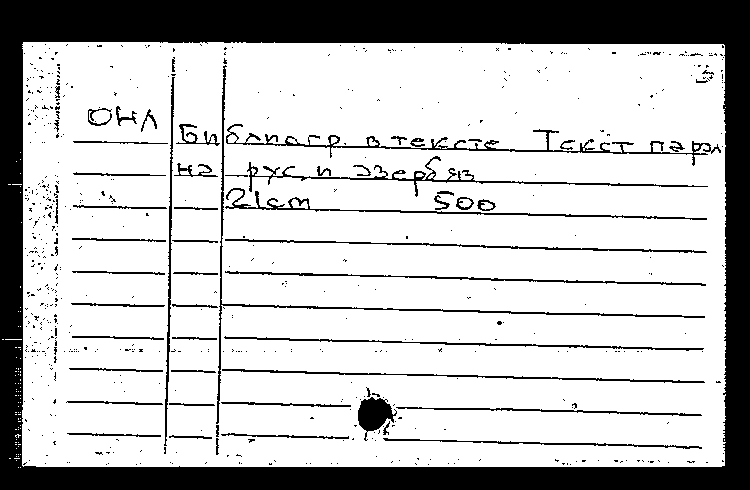 3
ОНЛ
Библиагр. в тексте Текст парал
на рус. и азерб яз
21cm 500